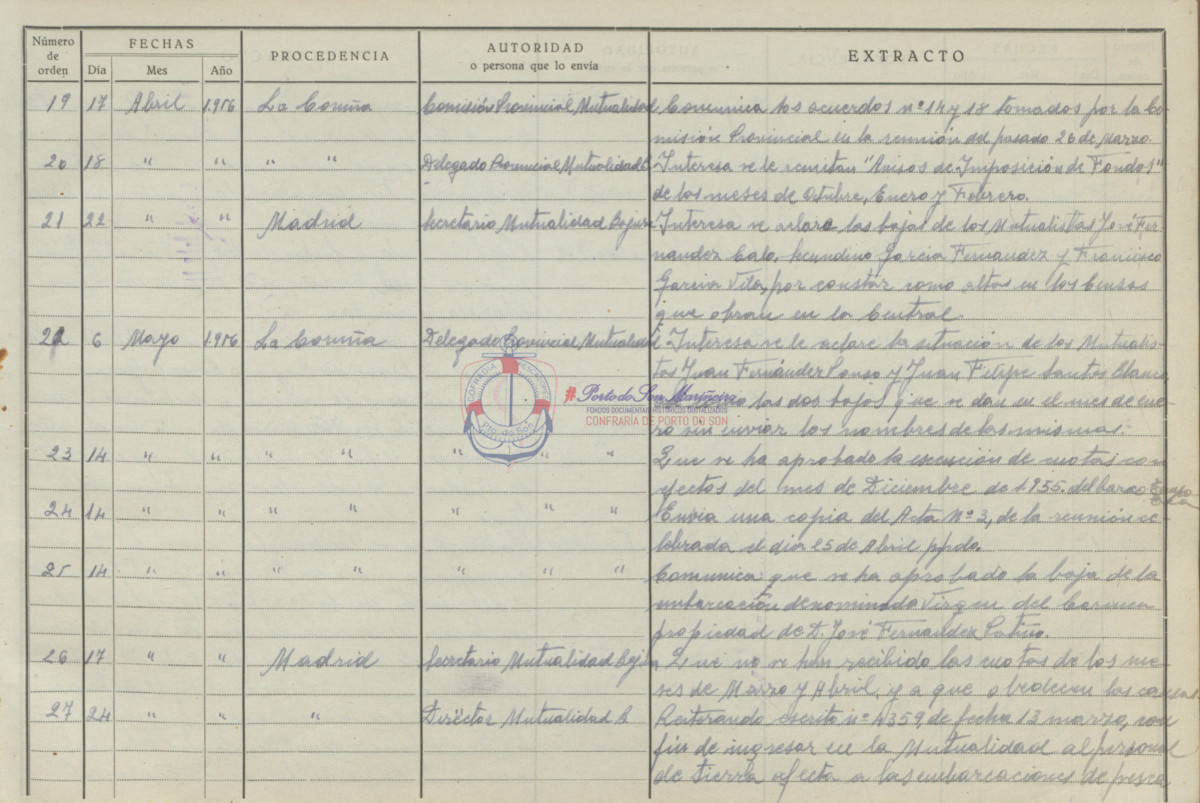 Número de orden FECHAS PROCEDENCIA AUTORIDAD o persona que lo envía EXTRACTO
Día Mes Año
19 17 Abril 1.956 La Coruña Comisión Provincial Mutualidad Comunica los acuerdos nº 14 y 18 tomados por la Co-
misión Provincial en la reunión del pasado 26 de Marzo.
20 18 " " " " Delegado Provincial Mutualidad Interesa se le remitan "Avisos de Imposición de Fondos"
de los meses de Octubre, Enero y Febrero.
21 22 " " Madrid Secretario Mutualidad Interesa se aclare las bajas de los Mutualistas José Fer-
nandez Calo, Secundino Garcia Fernandez y Francisco
Garcia Vila, por constar como altas en los Censos
que obran en la Central.
22 6 Mayo 1.956 La Coruña Delegado Provincial Mutualidad Interesa se le aclare la situación de los Mutualis-
tas Juan Fernández y Juan Felipe Santos Blanco,
las dos bajas que se dan en el mes de ene-
ro sin enviar los nombres de las mismas.
COFRADIA PESCADORES
Pto. do Son
# Porto do Son Mariñeira
FONDOS DOCUMENTAIS HISTÓRICOS DIGITALIZADOS
CONFRARÍA DE PORTO DO SON
23 14 " " " " " " " Que se ha aprobado la de cuotas con
efectos del mes de Diciembre de 1955. del barco
24 14 " " " " " " " Envia una copia del Acta Nº 3, de la reunión ce-
lebrada el dia 25 de Abril ppdo.
25 14 " " " " " " " Comunica que se ha aprobado la baja de la
embarcación denominada Virgen del Carmen
propiedad de D. José Fernandez Patiño.
26 17 " " Madrid Secretario Mutualidad Que no se han recibido las cuotas de los me-
ses de Marzo y Abril, y a que obedecen las causas
27 24 " " " Director Mutualidad B Reiterando escrito nº 4359, de fecha 13 marzo, con
fin de ingresar en la Mutualidad al personal
de tierra afecta a las embarcaciones de pesca